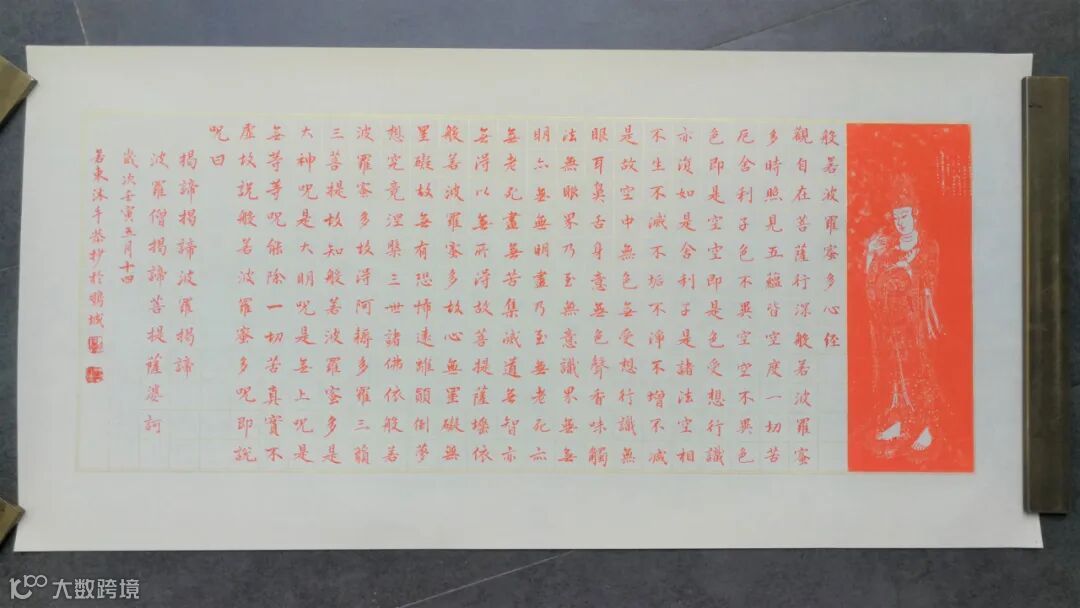 般若波羅蜜多心経
觀自在菩薩行深般若波羅蜜
多時照見五蘊皆空度一切苦
厄舍利子色不異空空不異色
色即是空空即是色受想行識
亦復如是舍利子是諸法空相
不生不滅不垢不淨不增不減
是故空中無色無受想行識無
眼耳鼻舌身意無色聲香味觸
法無眼界乃至無意識界無無
明亦無無明盡乃至無老死亦
無老死盡無苦集滅道無智亦
無得以無所得故菩提薩埵依
般若波羅蜜多故心無罣礙無
罣礙故無有恐怖遠離顛倒夢
想究竟涅槃三世諸佛依般若
波羅蜜多故得阿耨多羅三藐
三菩提故知般若波羅蜜多是
大神呪是大明呪是無上呪是
無等等呪能除一切苦真實不
虛故說般若波羅蜜多呪即說
呪曰
揭諦揭諦波羅揭諦
波羅僧揭諦菩提薩婆訶
歲次壬寅五月十四
若東沐手恭抄於鵬城
大数跨境